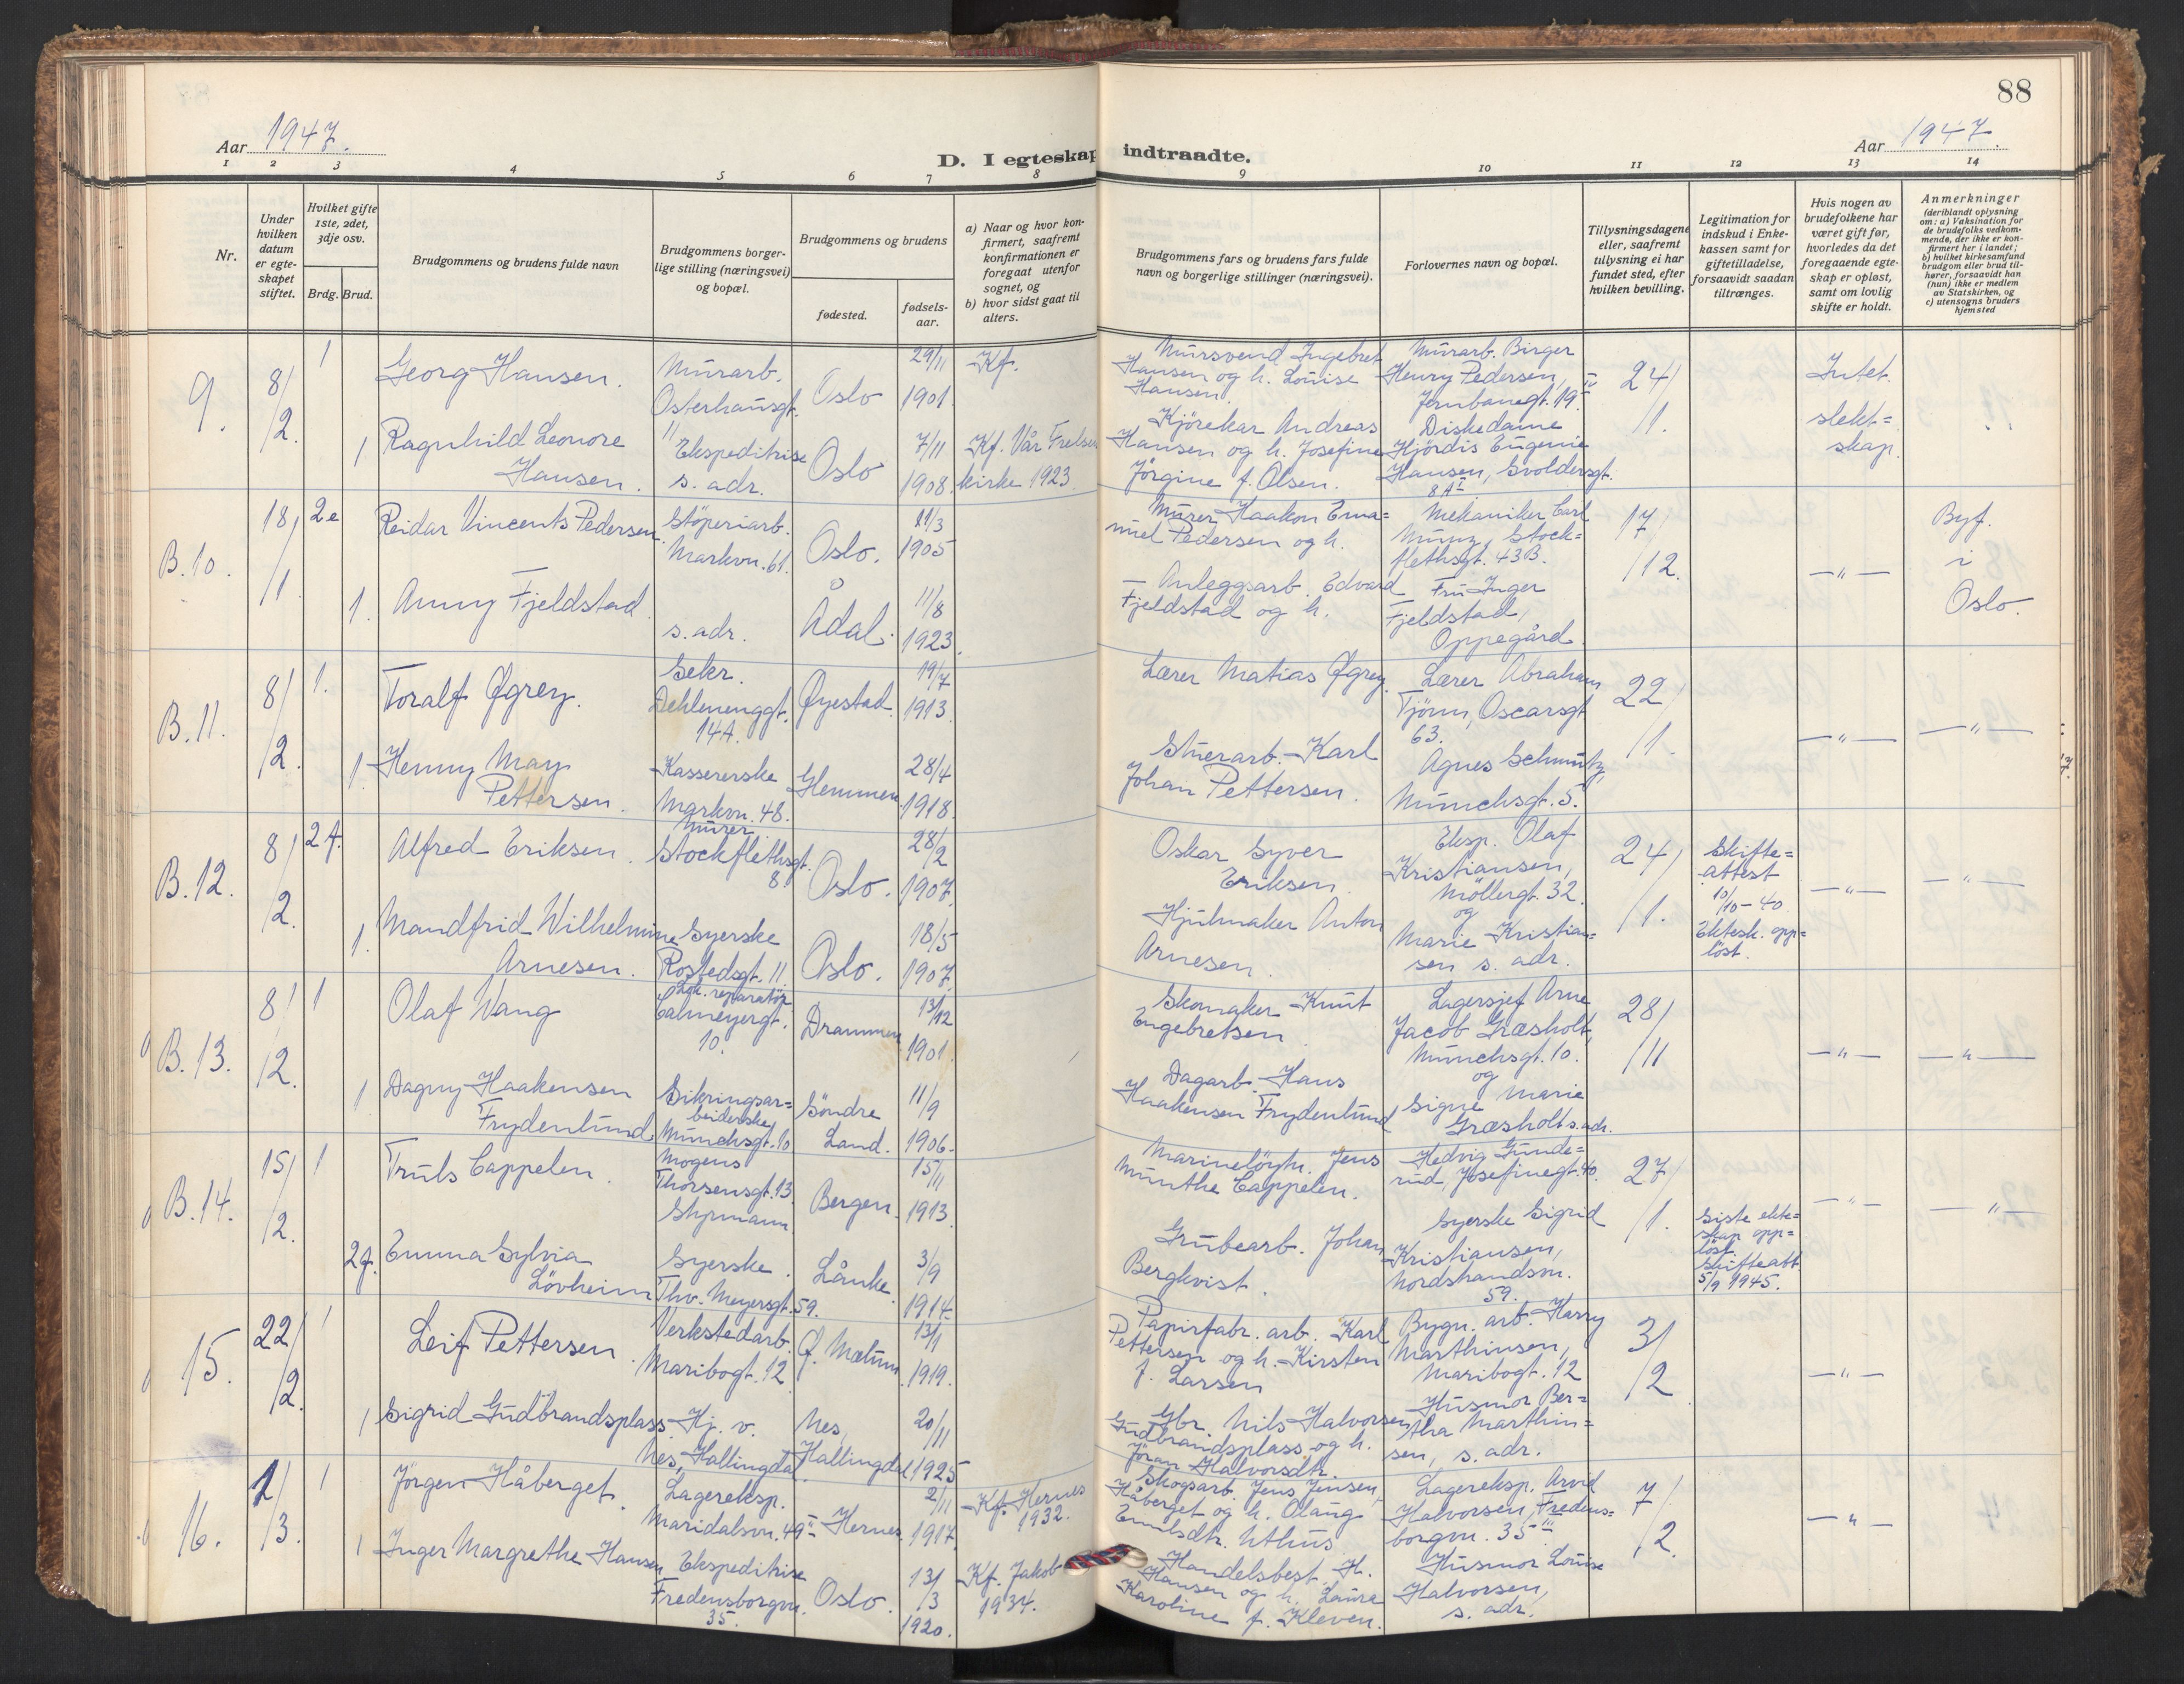 88
Aar 1947.
Aar 1947.
D. I egteskap indtraadte.
1 2 3 4 5 6 7 8 9 10 11 12 13 14
Nr.
Under hvilken datum er egteskapet stiftet.
Hvilket gifte 1ste, 2det, 3dje osv.
Brdg. Brud.
Brudgommens og brudens fulde navn
Brudgommens borgerlige stilling (næringsvei) og bopæl.
Brudgommens og brudens
fødested.
fødselsaar.
a) Naar og hvor konfirmert, saafremt konfirmationen er foregaat utenfor sognet, og
b) hvor sidst gaat til alters.
Brudgommens fars og brudens fars fulde navn og borgerlige stillinger (næringsvei).
Forlovernes navn og bopæl.
Tillysningsdagene eller, saafremt tillysning ei har fundet sted, efter hvilken bevilling.
Legitimation for indskud i Enkekassen samt for giftetilladelse, forsaavidt saadan tiltrænges.
Hvis nogen av brudefolkene har været gift før, hvorledes da det foregaaende egteskap er opløst, samt om lovlig skifte er holdt.
Anmerkninger
(deriblandt oplysning om: a) Vaksination for de brudefolks vedkommende, der ikke er konfirmert her i landet; b) hvilket kirkesamfund brudgom eller brud tilhører, forsaavidt han (hun) ikke er medlem av Statskirken, og c) utensogns bruders hjemsted
9. 8/2. 1 Georg Hansen. Murarb. Osterhausgt. 11 Oslo 29/11 1901. Kf. Mursvend Ingebret Hansen og h. Louise Hansen. Murarb. Birger Henry Pedersen, Jernbanegt. 19 IV 24/1. Intet slektskap.
1 Ragnhild Leonore Hansen. Ekspeditrise s. adr. Oslo 7/11 1908. Kf. Vår Frelser kirke 1923. Kjörekar Andreas Hansen og h. Josefine Jörgine f. Olsen. Diskedame Hjördis Eugenie Hansen, Svoldersgt. 8 A I
B.10. 18/1. 2e Reidar Vincents Pedersen. Stöperiarb. Markvn. 61. Oslo. 11/3 1905 Murer Haakon Emanuel Pedersen og h. Mekaniker Carl Munz, Stockflethsgt. 43B. 17/12. —"— Byf. i Oslo.
1. Anny Fjeldstad. s. adr. Ådal. 11/8 1923. Anleggsarb. Edvard Fjeldstad og h. Fru Inger Fjeldstad, Oppegård.
B.11. 8/2. 1. Toralf Øgrey. Sekr. Dehlenenggt. 14A. Øyestad. 19/7 1913. Lærer Matias Øgrey. Lærer Abraham Tjörn, Oscarsgt 63. 22/1. —"— —"—
1 Henny May Pettersen. Kassererske Markvn. 48. Glemmen. 28/4 1918. Stuerarb. Karl Johan Pettersen. Agnes Schmutz, Munchsgt. 5.
B.12. 8/2. 2 f. Alfred Eriksen. Murer Stockflethsgt. 8. Oslo. 28/2 1907. Oskar Syver Eriksen. Eksp. Olaf Kristiansen, Möllergt. 32. og 24/1. Skifteattest 10/10-40 Ektesk. oppløst. —"— —"—
1. Mandfrid Wilhelmine Arnesen. Syerske Rostedsgt. 11. Oslo. 18/5 1907. Hjulmaker Anton Arnesen. Marie Kristiansen s. adr.
B.13. 8/2. 1 Olaf Vang reparatör Calmeyergt. 10. Drammen 13/12 1901. Skomaker Knut Engebretsen Lagersjef Arne Jacob Græsholt, Munchsgt. 10. og 28/11 —"— —"—
1 Dagny Haakensen Frydenlund. Sikringsarbeiderske Munchsgt. 10 Söndre Land. 11/9 1906. Dagarb. Hans Haakensen Frydenlund Signe Marie Græsholt s. adr.
B.14. 15/2. 1 Truls Cappelen. Mogens Thorsensgt. 13 Styrmann Bergen. 15/11 1913. Marinelöytn. Jens Munthe Cappelen. Hedvig Gunderud, Josefinegt. 40. 27/1. —"— —"—
2 g. Emma Sylvia Lövheim Syerske. Thv. Meyersgt. 59. Lånke. 3/9 1914. Grubearb. Johan Bergkvist. Syerske Sigrid Kristiansen, Nordstrandsvn. 59. Siste ekteskap oppløst. Skifteatt 5/9 1945.
15. 22/2. 1 Leif Pettersen. Verkstedarb. Maribogt. 12 Ø. Mælum. 13/1 1919. Papirfabr. arb. Karl Pettersen og h. Kirsten f. Larsen Bygn. arb. Harry Marthinsen, Maribogt. 12 3/2 —"—
1 Sigrid Gudbrandsplass. Hj. v. Nes, Hallingdal. Nes, Hallingdal 20/11 1925 Gbr. Nils Halvorsen Gudbrandsplass og h. Jöran Halvorsdtr. Husmor Bertha Marthinsen, s. adr.
16. 1/3. 1 Jörgen Håberget. Lagereksp. Maridalsvn. 49 II Hernes. 2/11 1917. Kf. Hernes 1932. Skogsarb. Jens Jensen Håberget og h. Olaug Emilsdtr. Uthus Lagereksp. Arvid Halvorsen, Fredensborgvn. 35 III 7/2. —"—
1 Inger Margrethe Hansen Ekspeditrise Fredensborgvn. 35. Oslo. 13/3 1920. Kf. Jakob 1934. Handelsbest. H. Hansen og h. Laura Karoline f. Kleven. Husmor Louise Halvorsen, s. adr.